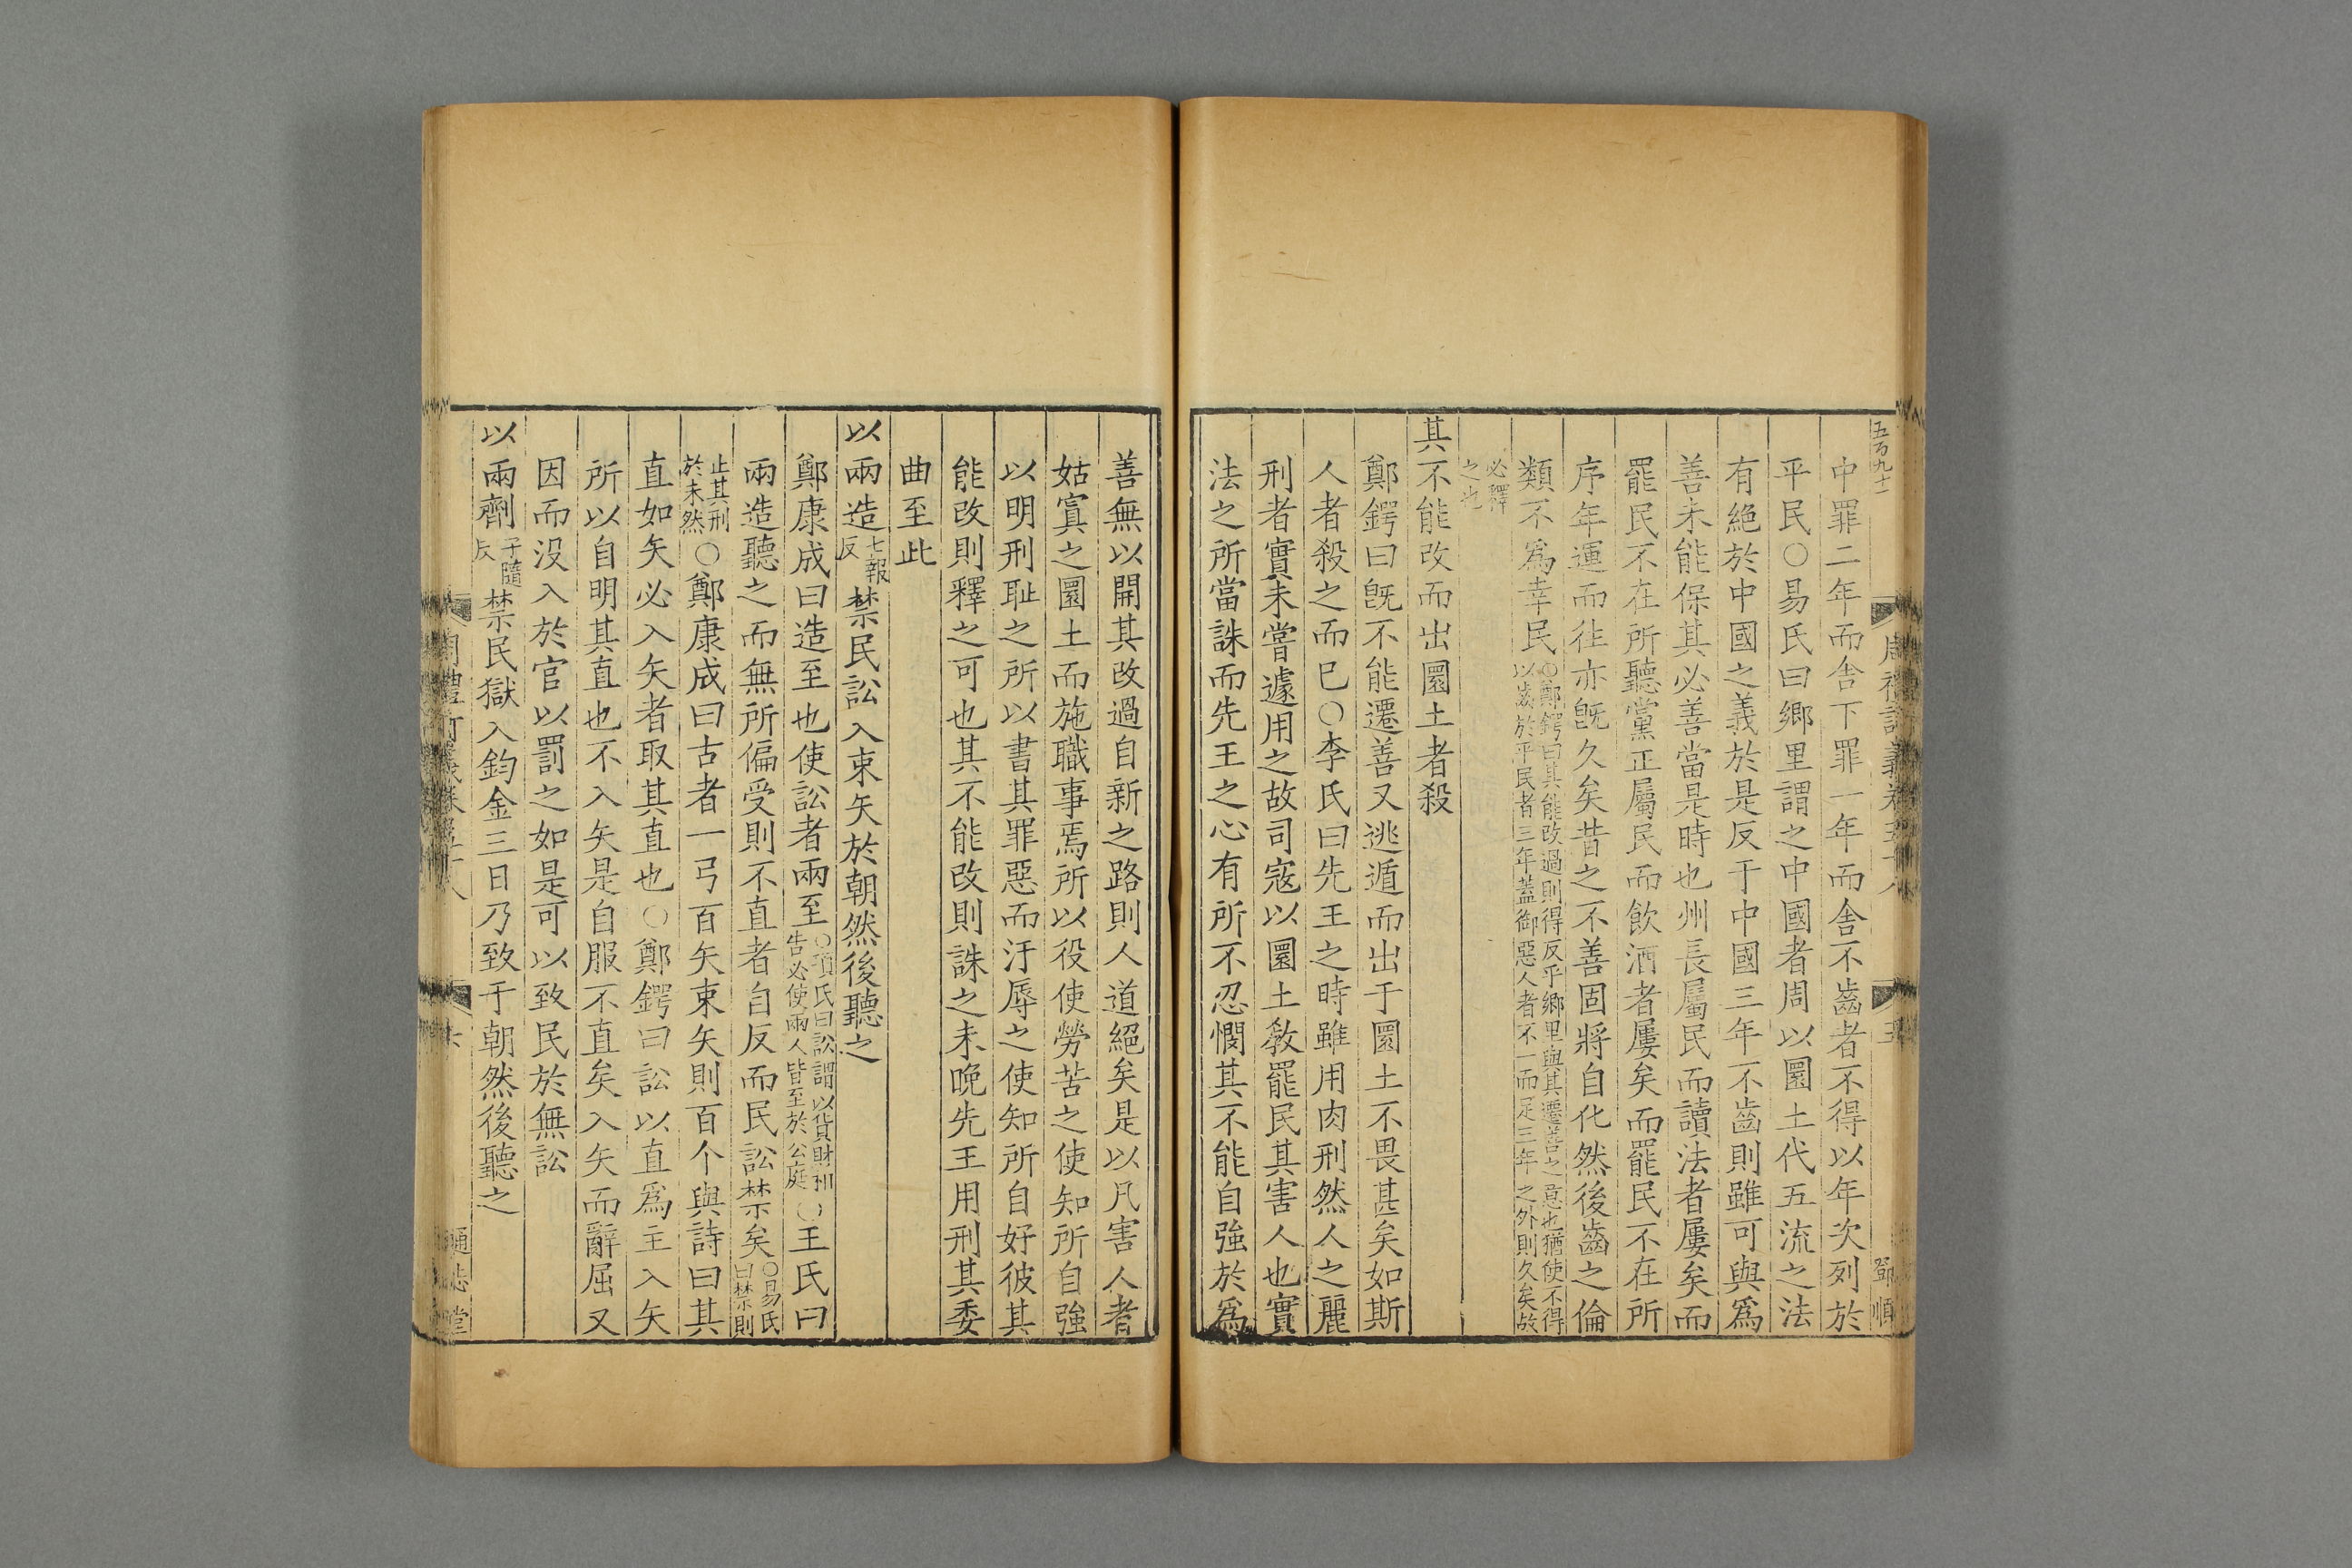 五百九十二
周禮訂義卷五十八
五
鄧順
中罪二年而舍下罪一年而舍不齒者不得以年次列於
平民○易氏曰鄉里謂之中國者周以圜土代五流之法
有絕於中國之義於是反于中國三年不齒則雖可與爲
善未能保其必善當是時也州長屬民而讀法者屢矣而
罷民不在所聽黨正屬民而飲酒者屢矣而罷民不在所
序年運而往亦旣久矣昔之不善固將自化然後齒之倫
類不爲幸民
○鄭鍔曰其能改過則得反乎鄉里與其遷善之意也猶使不得
以歲於平民者三年蓋御惡人者不一而足三年之外則久矣故
必釋
之也
其不能改而出圜土者殺
鄭鍔曰旣不能遷善又逃遁而出于圜土不畏甚矣如斯
人者殺之而已○李氏曰先王之時雖用肉刑然人之麗
刑者實未嘗遽用之故司寇以圜土敎罷民其害人也實
法之所當誅而先王之心有所不忍憫其不能自強於爲
善無以開其改過自新之路則人道絕矣是以凡害人者
姑寘之圜土而施職事焉所以役使勞苦之使知所自強
以明刑恥之所以書其罪惡而汙辱之使知所自好彼其
能改則釋之可也其不能改則誅之未晚先王用刑其委
曲至此
以兩造七報反禁民訟入束矢於朝然後聽之
鄭康成曰造至也使訟者兩至
○項氏曰訟謂以貨財相
告必使兩人皆至於公庭
○王氏曰
兩造聽之而無所偏受則不直者自反而民訟禁矣
○易氏
曰禁則
止其刑
於未然
○鄭康成曰古者一弓百矢束矢則百个與詩曰其
直如矢必入矢者取其直也○鄭鍔曰訟以直爲主入矢
所以自明其直也不入矢是自服不直矣入矢而辭屈又
因而没入於官以罰之如是可以致民於無訟
以兩劑子隨反禁民獄入鈞金三日乃致于朝然後聽之
周禮訂義卷五十八
六
通志堂